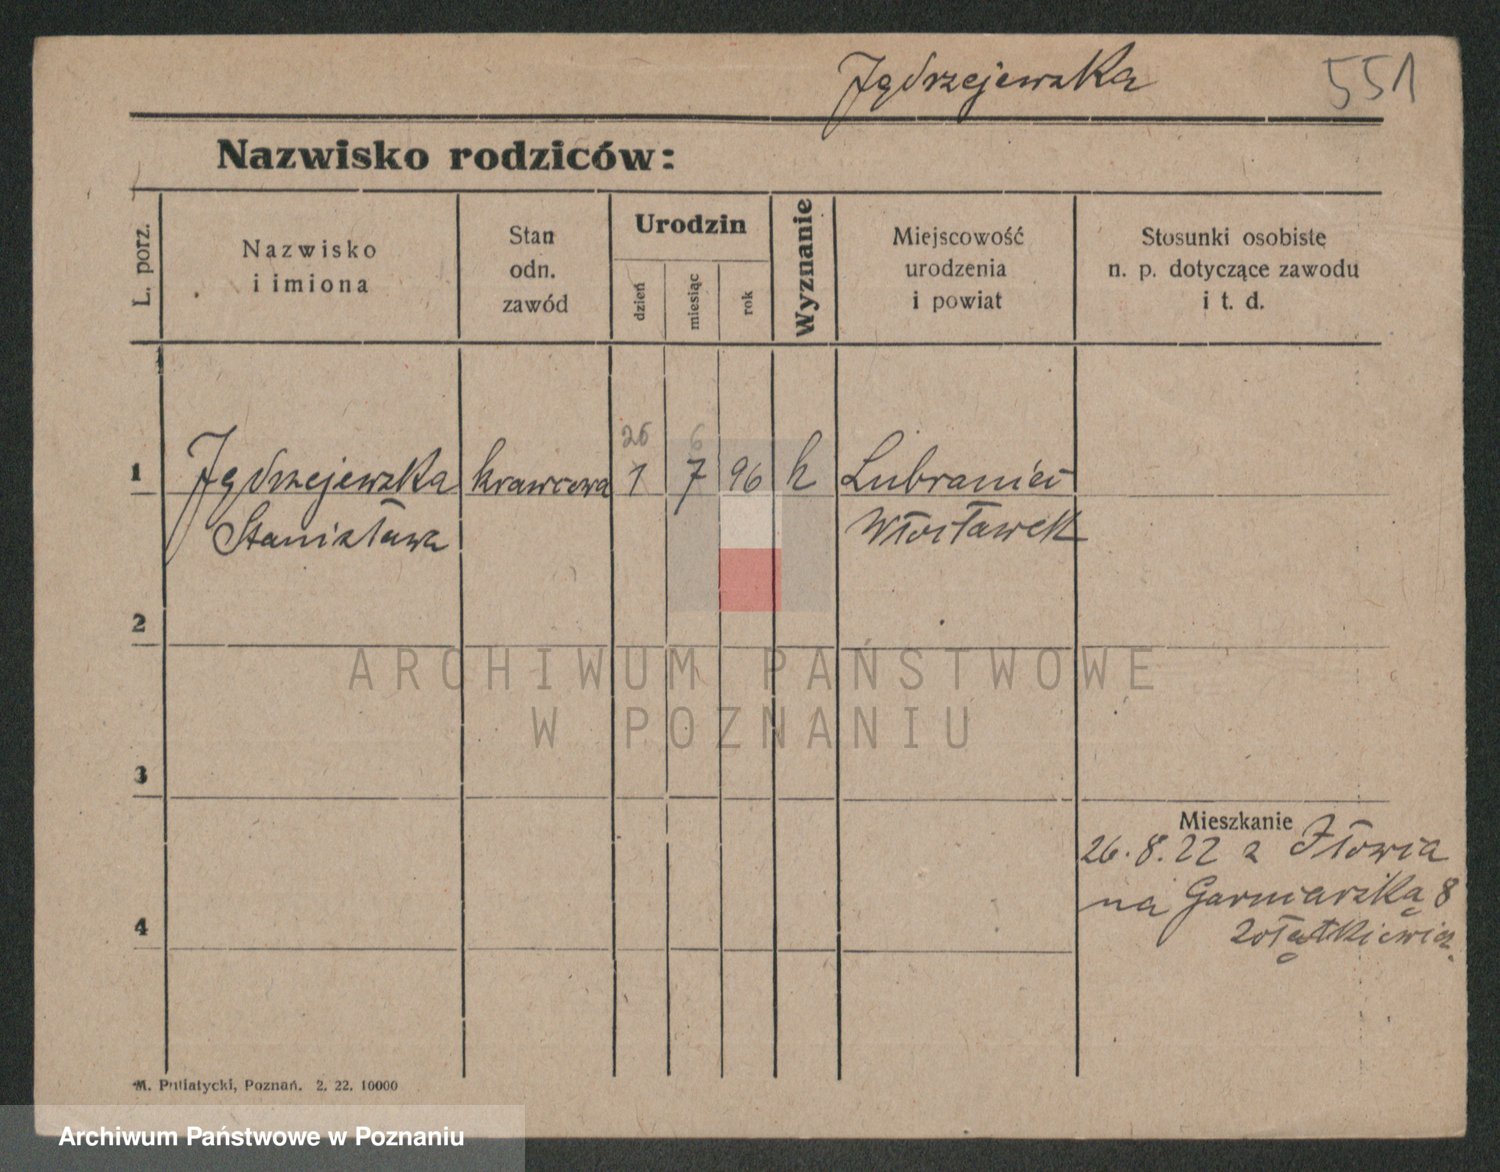 Jędrzejewska 551
Nazwisko rodziców:
L. porz.
Nazwisko
i imiona
Stan
odn.
zawód
Urodzin
dzień
miesiąc
rok
Wyznanie
Miejscowość
urodzenia
i powiat
Stosunki osobiste
n. p. dotyczące zawodu
i t. d.
26 6
1 Jędrzejewska krawcowa 1 7 96 k Lubraniec
Stanisława Włocławek
2
ARCHIWUM PAŃSTWOWE
W POZNANIU
3
Mieszkanie
26. 8. 22 z Iłowca
na Garncarską 8
4
M. Putiatycki, Poznań. 2. 22. 10000
Archiwum Państwowe w Poznaniu